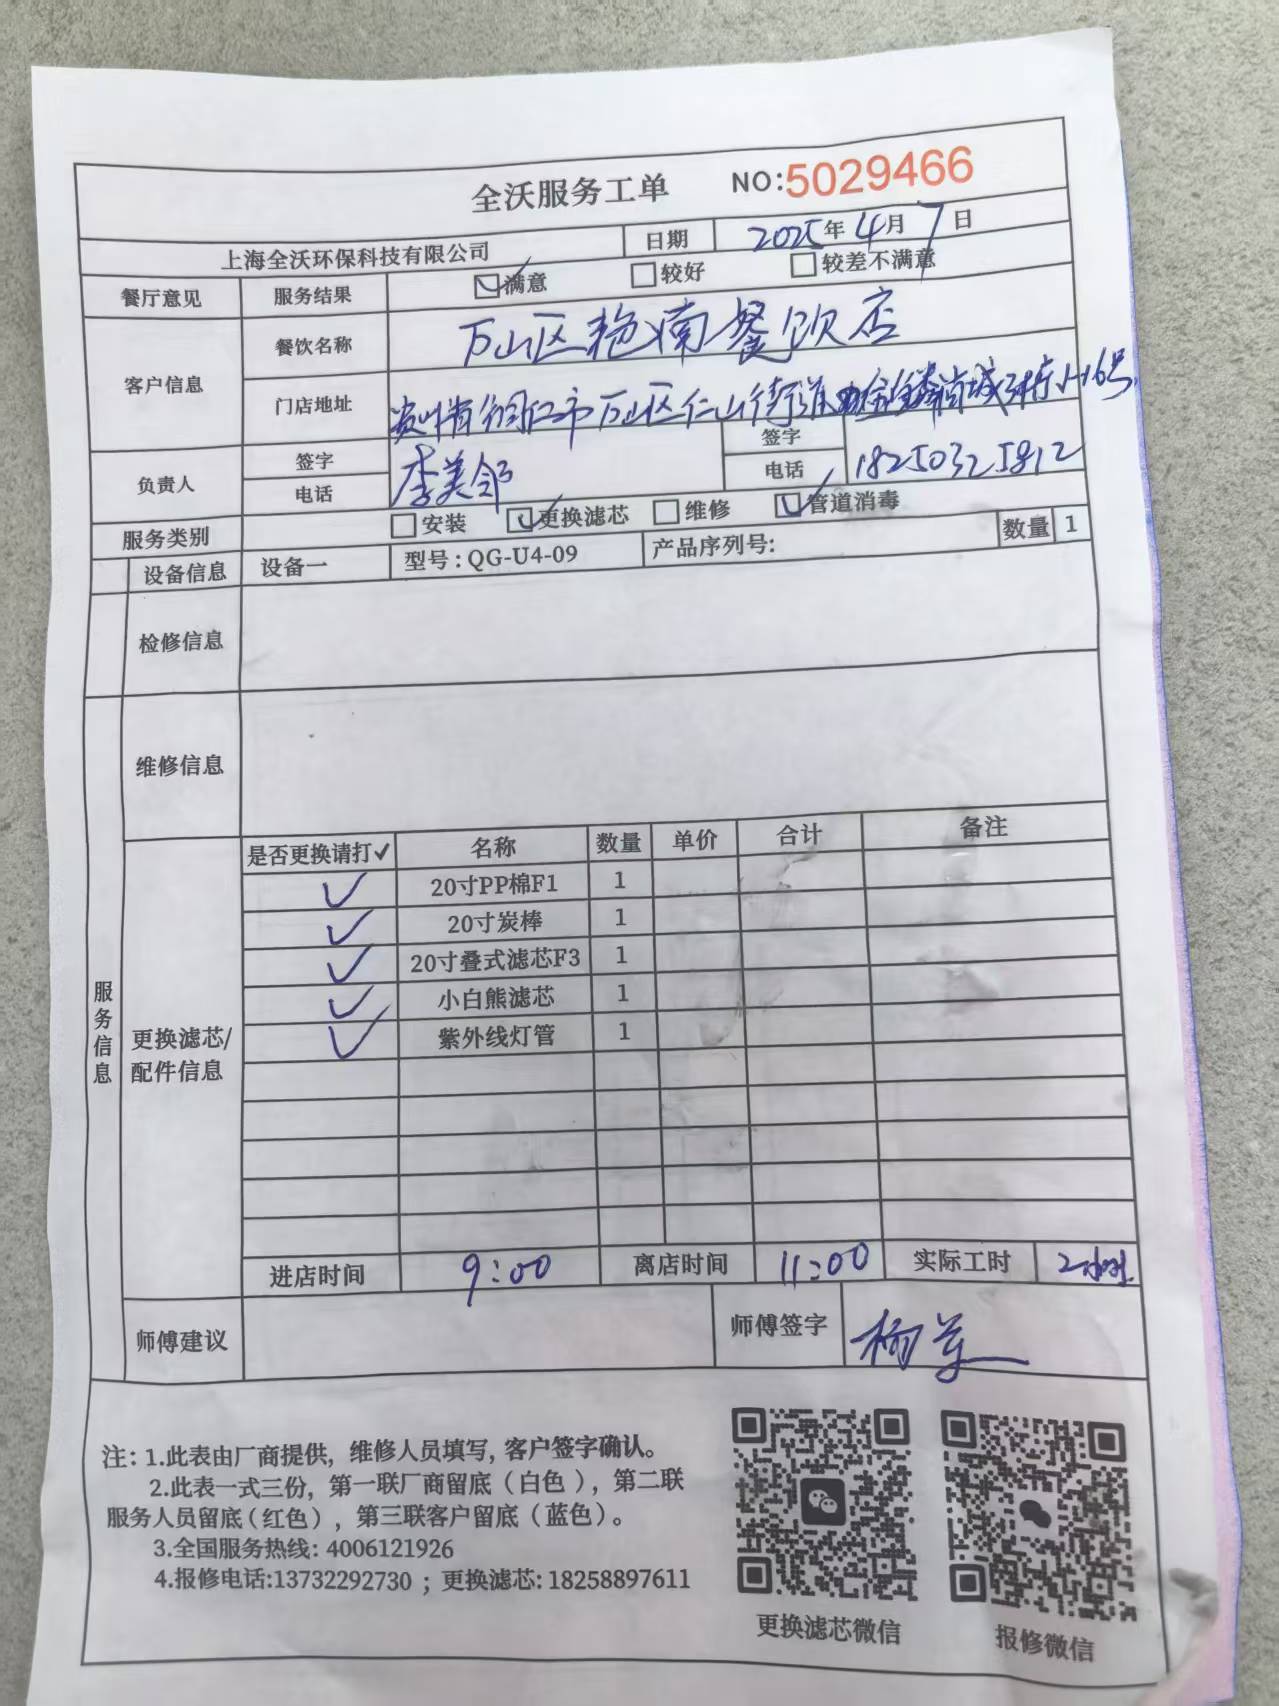 全沃服务工单 NO:5029466
上海全沃环保科技有限公司 日期 2025年4月7日
餐厅意见 服务结果 满意 较好 较差不满意
客户信息 餐饮名称 万山区艳南餐饮店
门店地址 贵州省铜仁市万山区仁山街道 城 16号
负责人 签字 李美邻 签字
电话 电话 18250325812
服务类别 安装 更换滤芯 维修 管道消毒
设备信息 设备一 型号:QG-U4-09 产品序列号: 数量 1
检修信息
维修信息
服务信息
更换滤芯/配件信息
是否更换请打✓ 名称 数量 单价 合计 备注
✓ 20寸PP棉F1 1
✓ 20寸炭棒 1
✓ 20寸叠式滤芯F3 1
✓ 小白熊滤芯 1
✓ 紫外线灯管 1
进店时间 9:00 离店时间 11:00 实际工时 2小时
师傅建议 师傅签字 杨
注:1.此表由厂商提供,维修人员填写,客户签字确认。
2.此表一式三份,第一联厂商留底(白色),第二联
服务人员留底(红色),第三联客户留底(蓝色)。
3.全国服务热线:4006121926
4.报修电话:13732292730;更换滤芯:18258897611
更换滤芯微信 报修微信